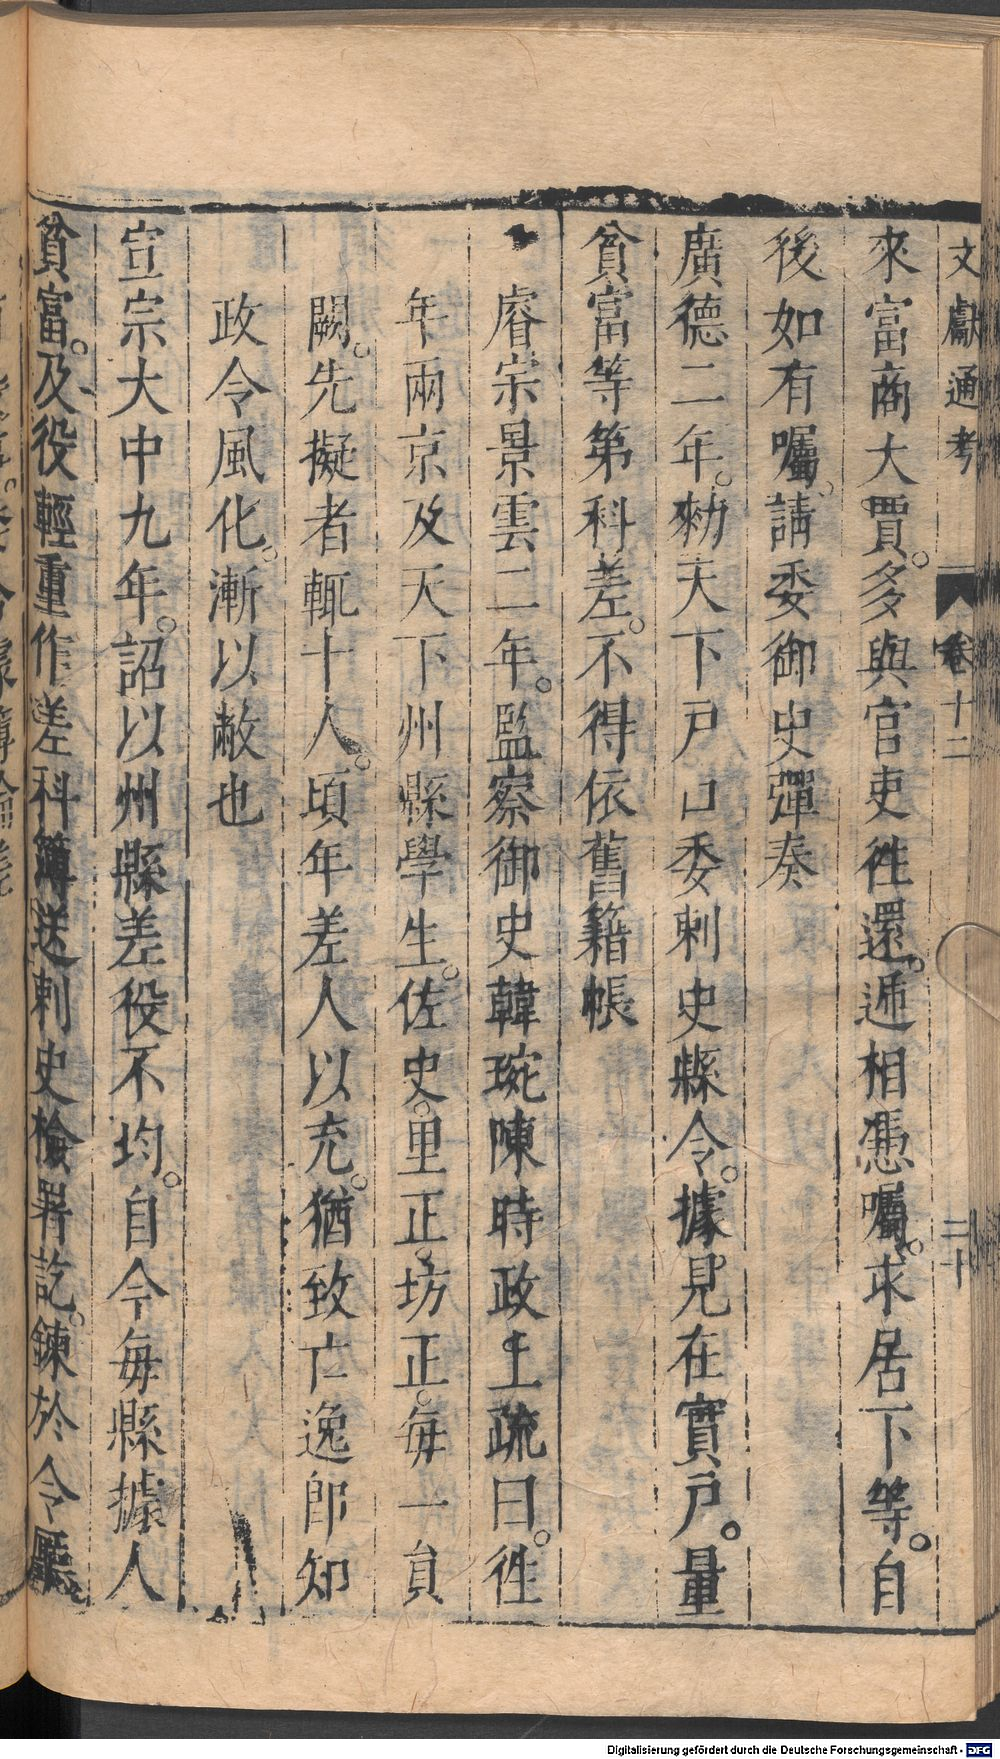 文獻通考 卷十二 二十
來富商大賈。多與官吏徃還。遞相憑囑。求居下等。自
後如有囑請委御史彈奏
廣德二年。勑天下戸口委刺史縣令。據見在實戸。量
貧富等第科差。不得依舊籍帳
睿宗景雲二年。監察御史韓琬陳時政上疏曰。徃
年兩京及天下州縣學生。佐史。里正。坊正。每一員
闕。先擬者輒十人。頃年差人以充。猶致亡逸即知
政令風化。漸以敝也
宣宗大中九年。詔以州縣差役不均。自今每縣據人
貧富。及役輕重作差科簿送刺史檢署訖。鍊於令廳
Digitalisierung gefördert durch die Deutsche Forschungsgemeinschaft - DFG